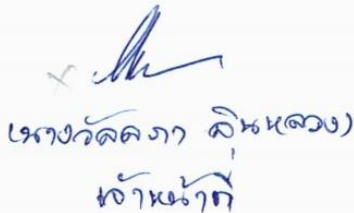 (นางวัลลภา ลุนหลวง)
เจ้าหน้าที่